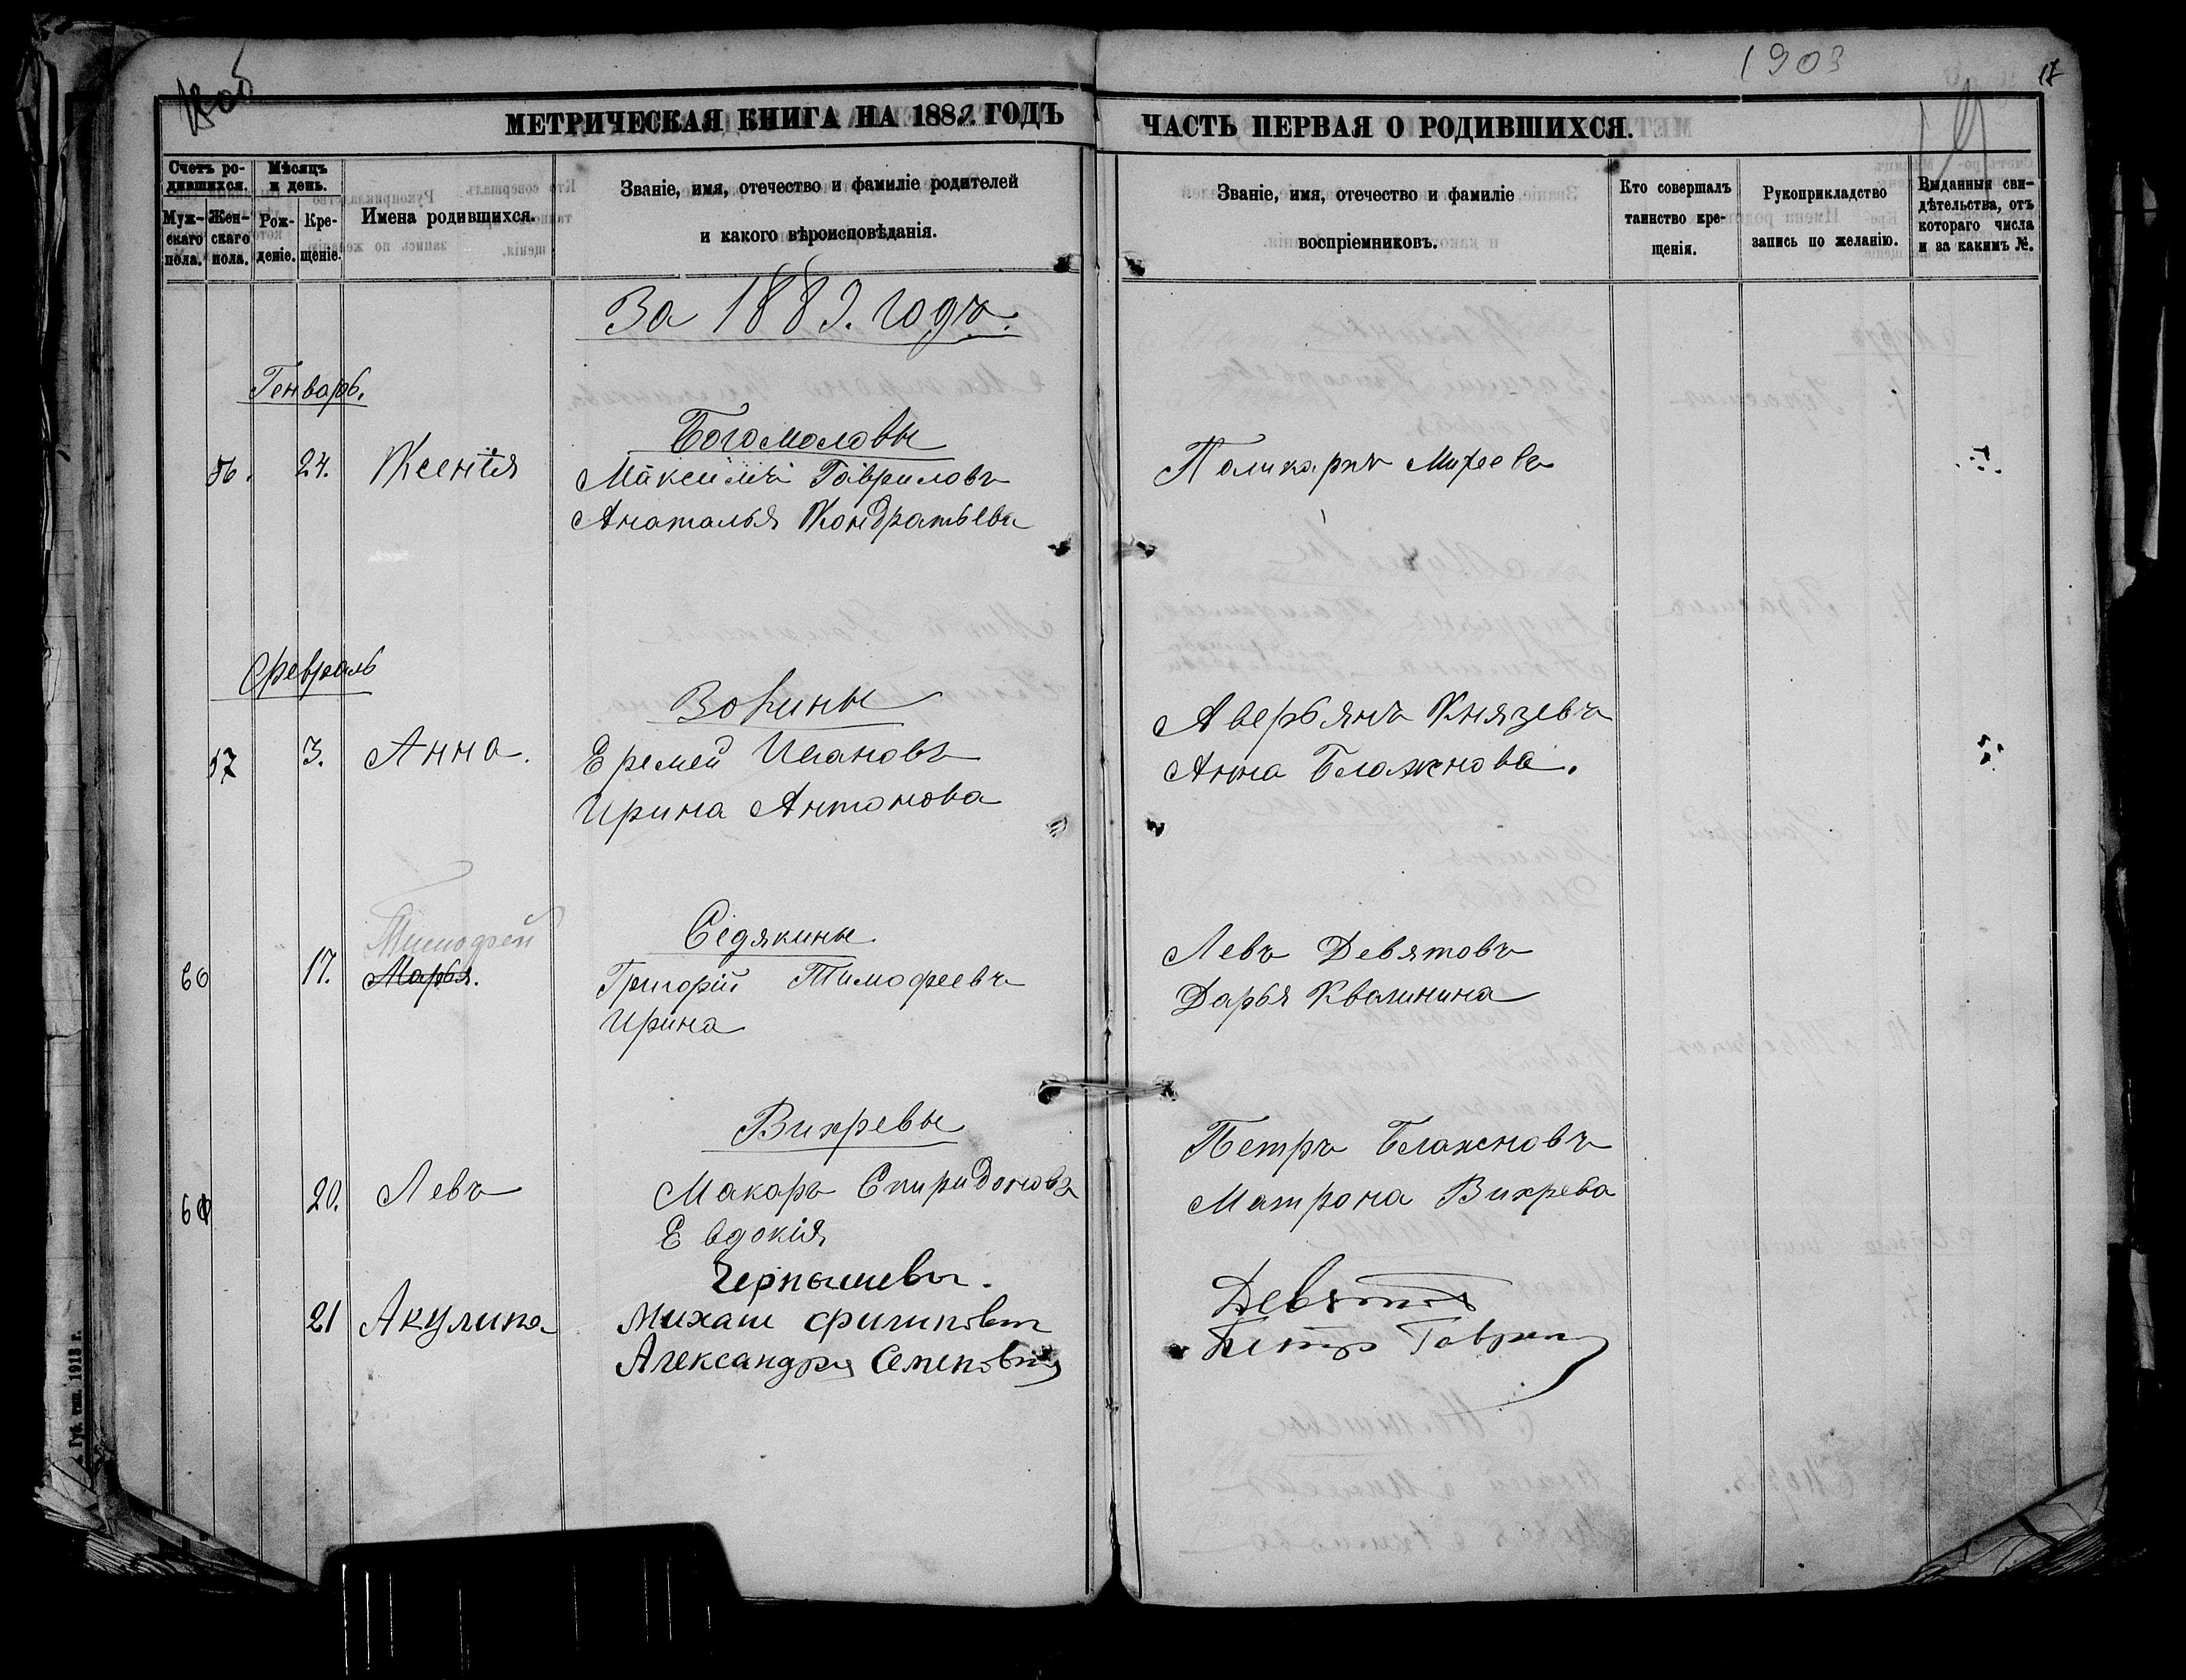 1903
17
МЕТРИЧЕСКАЯ КНИГА НА 1889. ГОДЪ
ЧАСТЬ ПЕРВАЯ О РОДИВШИХСЯ.
Счетъ родившихся.
Мужскаго пола.
Женскаго пола.
Мѣсяцъ и день.
Рожденіе.
Крещеніе.
Имена родившихся.
Званіе, имя, отечество и фамиліе родителей
и какого вѣроисповѣданія.
Званіе, имя, отечество и фамиліе
воспріемниковъ.
Кто совершалъ
таинство крещенія.
Рукоприкладство
запись по желанію.
Выданныя свидѣтельства, отъ
котораго числа
и за какимъ №.
За 1889. годъ.
Генварь.
Богомоловы
56. 24. Ксенія Максимъ Гавриловъ Поликарпъ Михеевъ
Анаталья Кондратьева
Февраль
Вокины Аверьянъ Князевъ
57 3. Анна. Еремей Ивановъ Анна Блаженова.
Ирина Антонова
Тимофей Седякины Левъ Девятовъ
60 17. Марья. Григорій Тимофеевъ Дарья Квашнина
Ирина
Вихревы Петръ Блаженовъ
20. Левъ Макаръ Спиридоновъ Матрона Вихрева
Евдокія
Чернышевы.
21 Акулина Михаил Филиповъ
Александра Семеновна
Губ. тип. 1913 г.